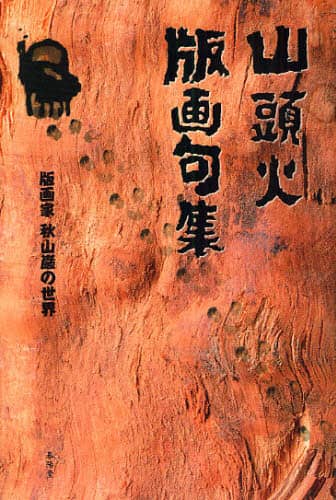 山頭火
版画句集
版画家 秋山巌の世界
春陽堂